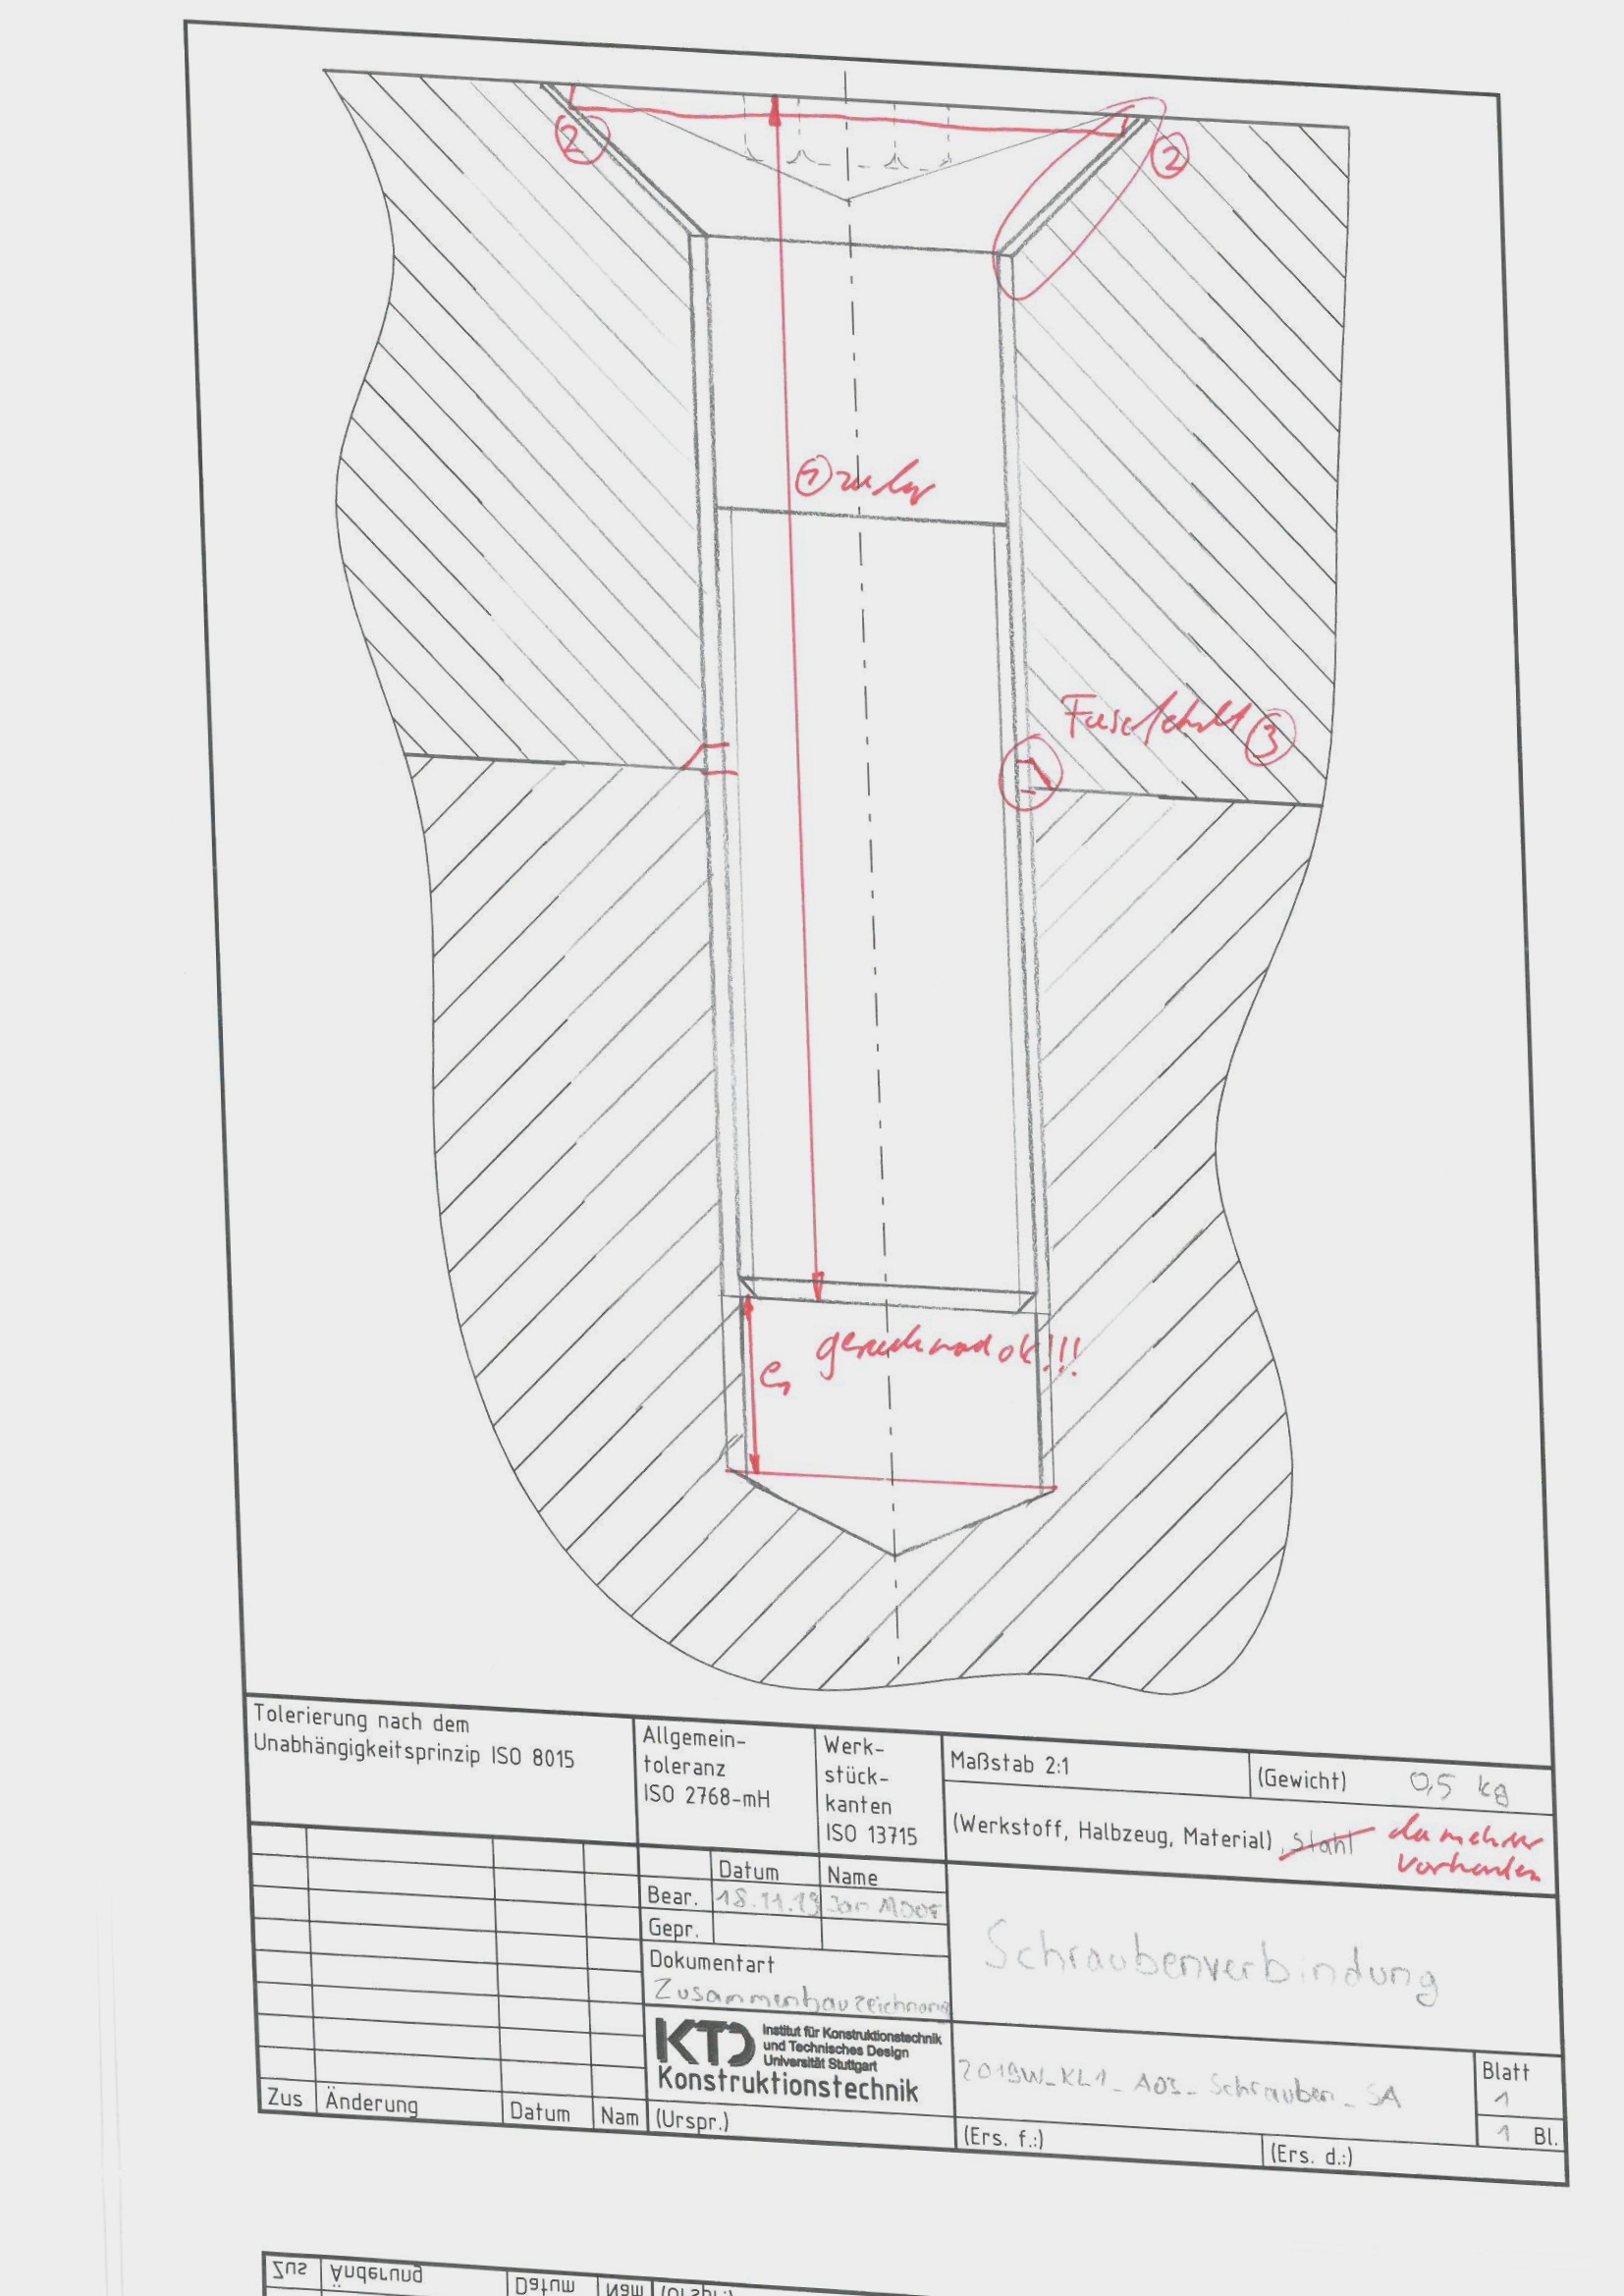 ②
②
① zu lang
Fase fehlt ③
e₁ gerade noch ok!!!
Tolerierung nach dem
Unabhängigkeitsprinzip ISO 8015
Allgemein-
toleranz
ISO 2768-mH
Werk-
stück-
kanten
ISO 13715
Maßstab 2:1
(Gewicht) 0,5 kg
(Werkstoff, Halbzeug, Material) Stahl
da mehrere
vorhanden
Datum Name
Bear. 18.11.19 Jan
Gepr.
Dokumentart
Zusammenbauzeichnung
Schraubenverbindung
KTD
Institut für Konstruktionstechnik
und Technisches Design
Universität Stuttgart
Konstruktionstechnik
2019W_KL1_A03_Schrauben_SA
Blatt
1
1 Bl.
Zus Änderung Datum Nam (Urspr.)
(Ers. f.:) (Ers. d.:)
Zus Änderung Datum Nam (Urspr.)